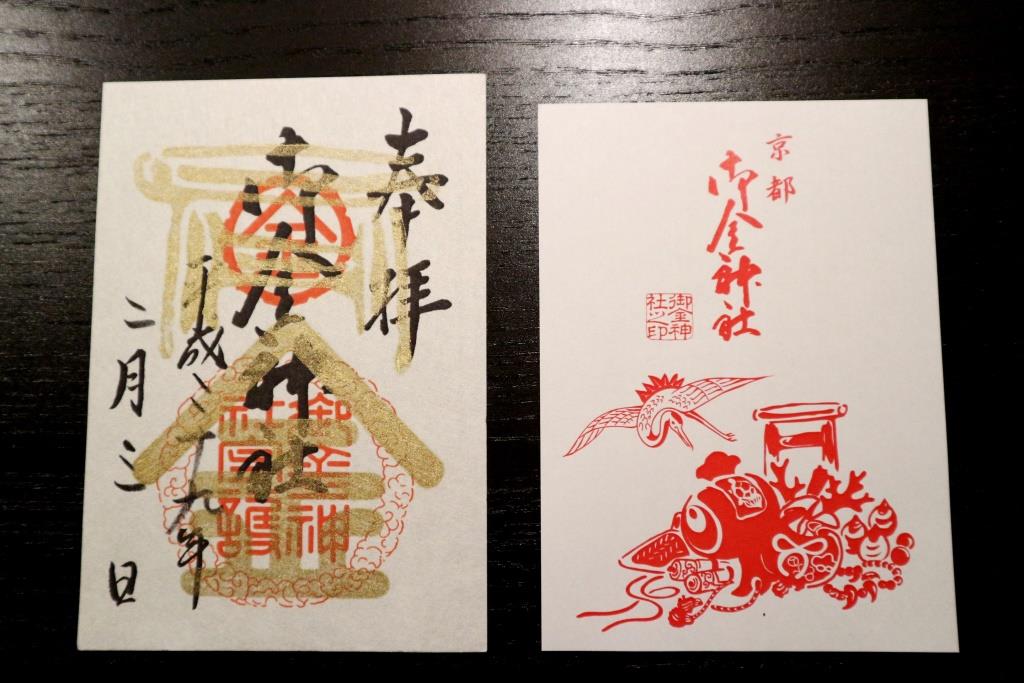 奉拝
御金神社
平成二十九年
二月三日
金
御金神
社守護
京都
御金神社
御金神
社之印